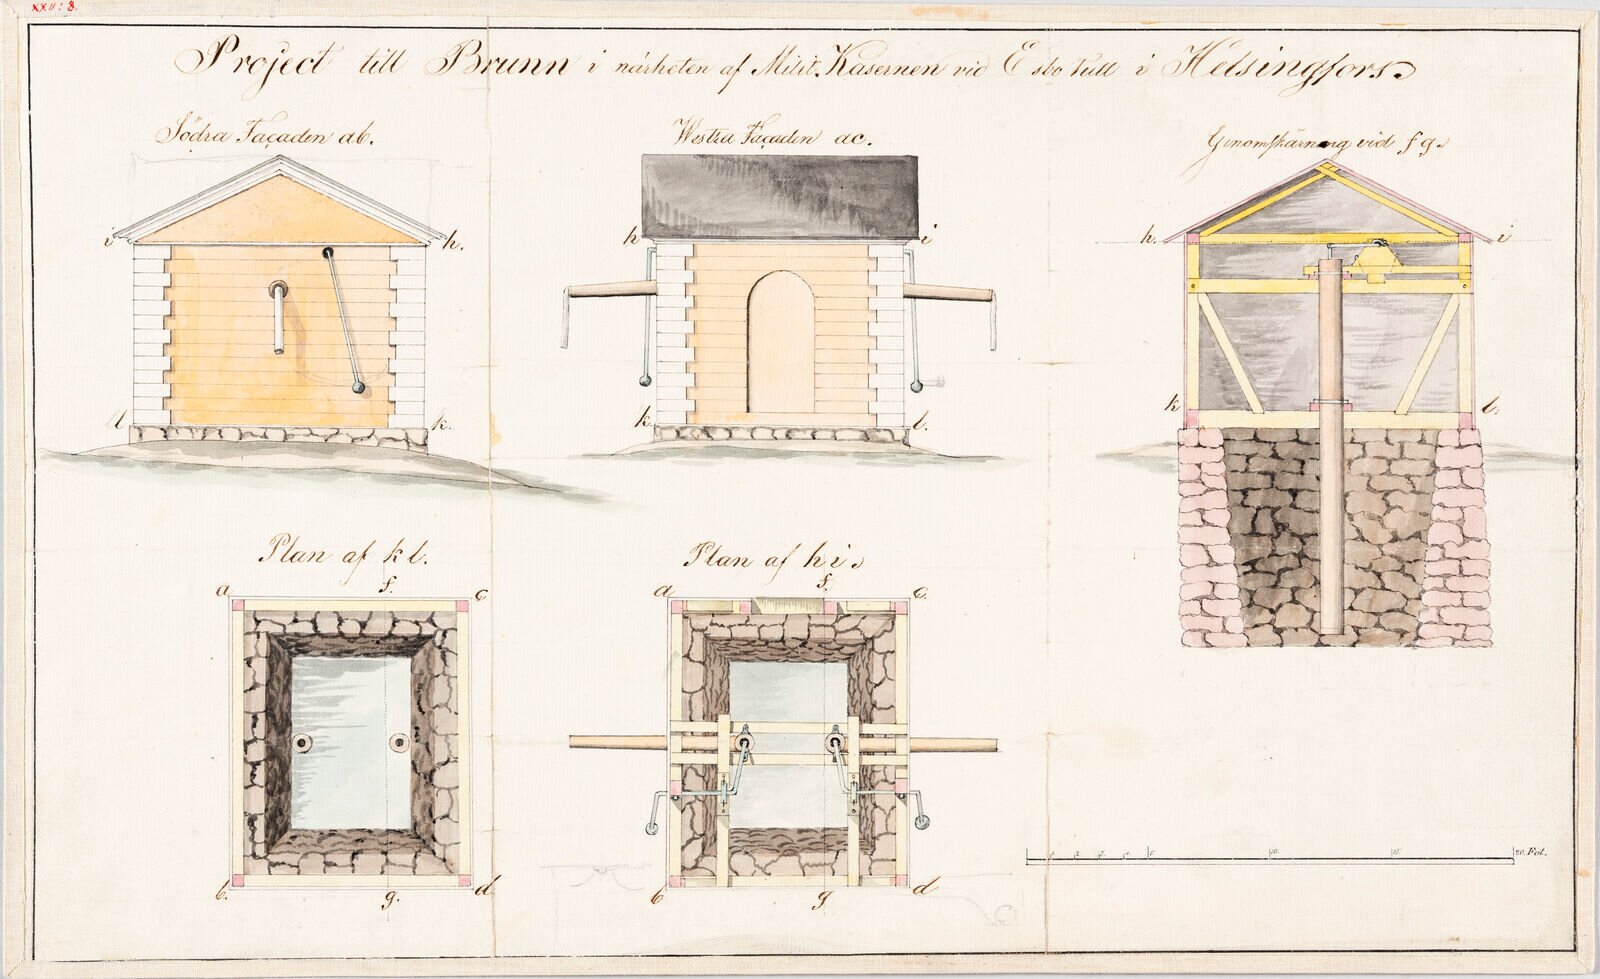 XXII: 8.
Project till Brunn i närheten af Milit. Kasernen vid Esbo Tull i Helsingfors.
Södra Façaden ab.
Westra Façaden ac.
Genomskärning vid fg.
i h.
h i
h. i
l k.
k. l.
k l.
Plan af kl.
Plan af hi.
f.
f.
a c
a c.
1 2 3 4 5 10. 15 20. Fot.
b. g. d
b g d